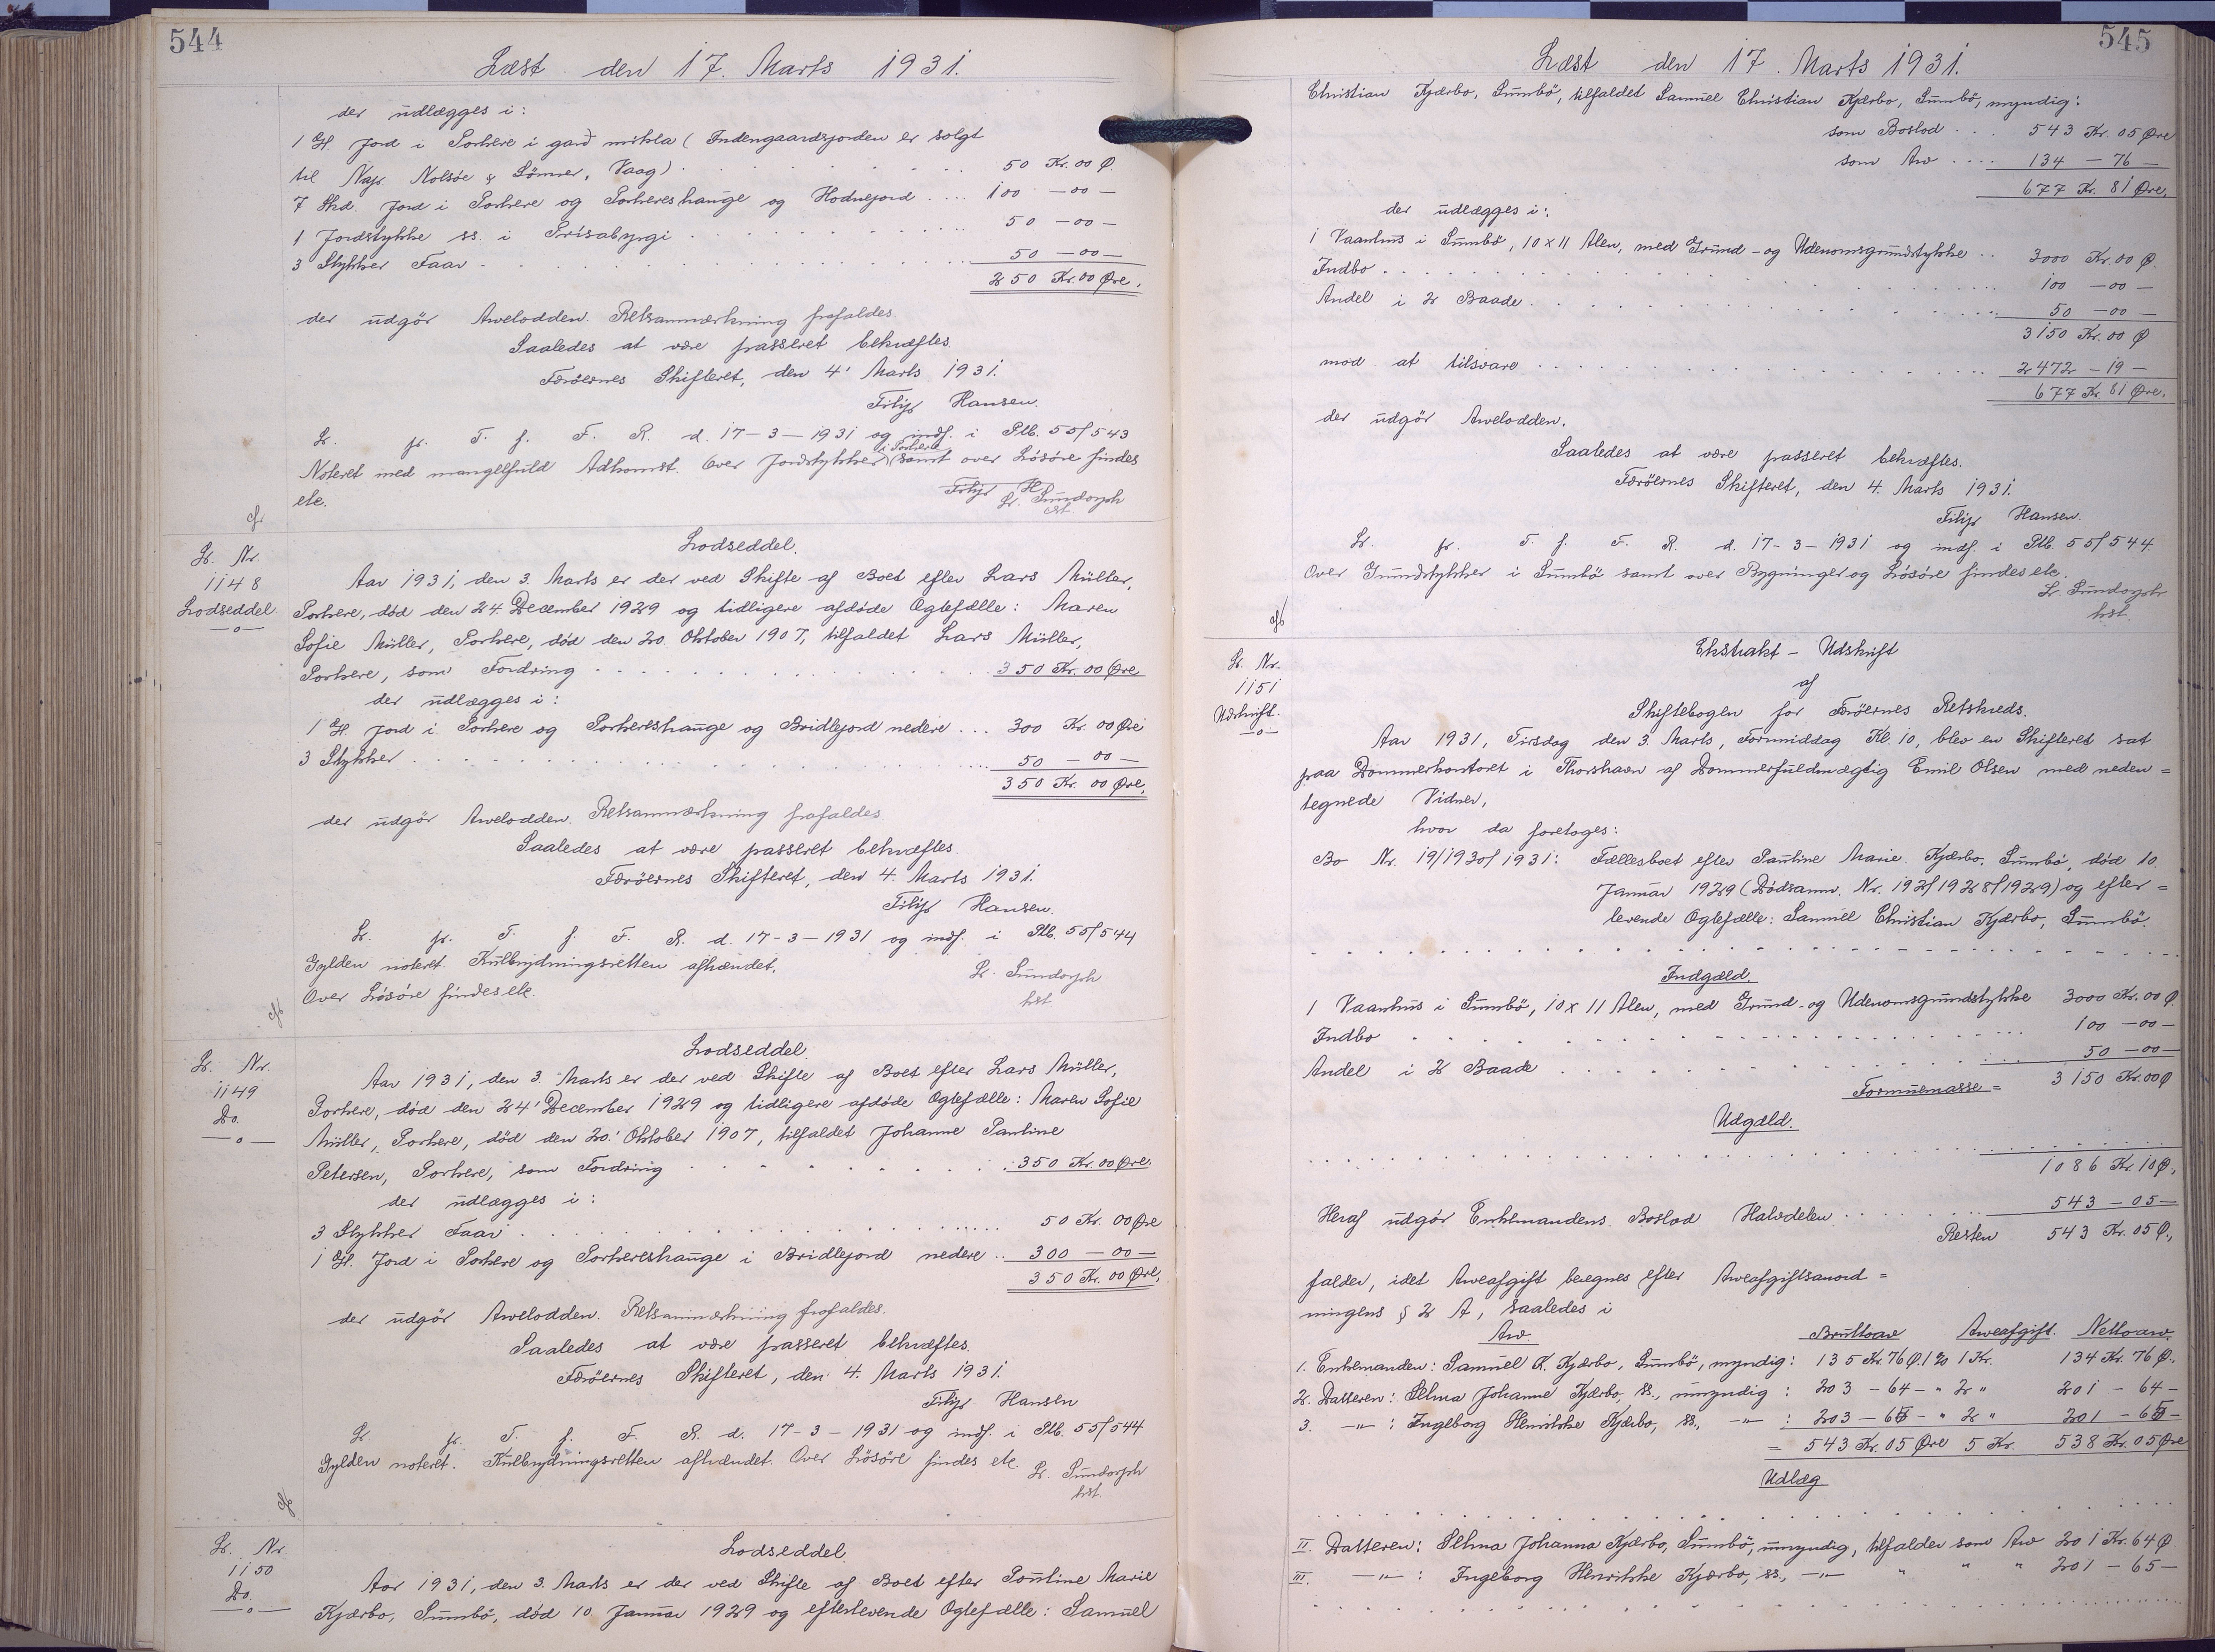 544
Læst den 17. Marts 1931.
der udlægges i:
1 G. Jord i Porkere i garð mikla (Indengaardsjorden er solgt
til Napr. Nolsøe & Sønner, Vaag) . . . 50 Kr. 00 Ø.
7 Skd. Jord i Porkere og Porkereshauge og Hodnejord .... 100 — 00 —
1 Jordstykke ss. i Prísabyrgi . . . 50 — 00 —
3 Stykker Faar . . . 50 — 00 —
250 Kr. 00 Øre.
der udgör Arvelodden. Retsanmærkning frafaldes.
Saaledes at være passeret bekræftes.
Færöernes Skifteret, den 4' Marts 1931.
Filip Hansen.
Lr. pr. T. f. F. R. d. 17-3-1931 og indf. i Ptb. 55/543
Noteret med mangelfuld Adkomst. Over Jordstykker i Porkere samt over Lösöre findes
etc.
Filip H
Lr. Sundorph
cst.
Lr. Nr.
1148
Lodseddel
Lodseddel.
Aar 1931, den 3. Marts er der ved Skifte af Boet efter Lars Müller,
Porkere, död den 24. December 1929 og tidligere afdöde Ægtefælle: Maren
Sofie Müller, Porkere, död den 20. Oktober 1907, tilfaldet Lars Müller,
Porkere, som Fordring . . . 350 Kr. 00 Øre
der udlægges i:
1 G. Jord i Porkere og Porkereshauge og Bridlejord nedere ... 300 Kr. 00 Øre
3 Stykker . . . 50 — 00 —
350 Kr. 00 Øre.
der udgör Arvelodden. Retsanmærkning frafaldes.
Saaledes at være passeret bekræftes.
Færöernes Skifteret, den 4. Marts 1931.
Filip Hansen.
Lr. pr. T. f. F. R. d. 17-3-1931 og indf. i Ptb. 55/544
Gylden noteret. Kulbrydningsretten afhændet.
Over Lösöre findes etc.
Lr. Sundorph
kst.
Lr. Nr.
1149
Do.
Lodseddel.
Aar 1931, den 3. Marts er der ved Skifte af Boet efter Lars Müller,
Porkere, död den 24' December 1929 og tidligere afdöde Ægtefælle: Maren Sofie
Müller, Porkere, död den 20.' Oktober 1907, tilfaldet Johanne Pauline
Petersen, Porkere, som Fordring . . . 350 Kr. 00 Øre.
der udlægges i:
3 Stykker Faar . . . 50 Kr. 00 Øre
1 G. Jord i Porkere og Porkereshauge i Bridlejord nedere .. 300 — 00 —
350 Kr. 00 Øre.
der udgör Arvelodden. Retsanmærkning frafaldes.
Saaledes at være passeret bekræftes.
Færöernes Skifteret, den 4. Marts 1931.
Filip Hansen
Lr. pr. T. f. F. R. d. 17-3-1931 og indf. i Ptb. 55/544
Gylden noteret. Kulbrydningsretten afhændet. Over Lösöre findes etc.
Lr. Sundorph
kst.
Lr. Nr.
1150
Do.
Lodseddel.
Aar 1931, den 3. Marts er der ved Skifte af Boet efter Pauline Marie
Kjærbo, Sumbö, död 10. Januar 1929 og efterlevende Ægtefælle: Samuel
545
Læst den 17. Marts 1931.
Christian Kjærbo, Sumbö, tilfaldet Samuel Christian Kjærbo, Sumbö, myndig:
som Boslod . . . 543 Kr. 05 Øre
som Arv .... 134 — 76 —
677 Kr. 81 Øre.
der udlægges i:
1 Vaanhus i Sumbö, 10 x 11 Alen, med Grund- og Udenomsgrundstykke .. 3000 Kr. 00 Ø.
Indbo . . . 100 — 00 —
Andel i 2 Baade . . . 50 — 00 —
3150 Kr. 00 Ø
mod at tilsvare . . . 2472 — 19 —
677 Kr. 81 Øre.
der udgör Arvelodden.
Saaledes at være passeret bekræftes.
Færöernes Skifteret, den 4. Marts 1931.
Filip Hansen.
Lr. pr. T. f. F. R. d. 17-3-1931 og indf. i Ptb. 55/544.
Over Grundstykker i Sumbö samt over Bygninger og Lösöre findes etc.
Lr. Sundorph
kst.
Lr. Nr.
1151
Udskrift.
Ekstrakt - Udskrift
af
Skiftebogen for Færöernes Retskreds.
Aar 1931, Tirsdag den 3. Marts, Formiddag Kl. 10, blev en Skifteret sat
paa Dommerkontoret i Thorshavn af Dommerfuldmægtig Emil Olsen med neden=
tegnede Vidner,
hvor da foretoges:
Bo Nr. 19/1930/1931: Fællesboet efter Pauline Marie Kjærbo, Sumbö, död 10.
Januar 1929 (Dödsanm. Nr. 192/1928/1929) og efter=
levende Ægtefælle: Samuel Christian Kjærbo, Sumbö.
Indgæld.
1 Vaanhus i Sumbö, 10 x 11 Alen, med Grund- og Udenomsgrundstykke 3000 Kr. 00 Ø.
Indbo . . . 100 — 00 —
Andel i 2 Baade . . . 50 — 00 —
Formuemasse = 3150 Kr. 00 Ø
Udgæld.
1086 Kr. 10 Ø.
Heraf udgör Enkemandens Boslod Halvdelen . . . 543 — 05 —
Resten 543 Kr. 05 Ø.,
falder, idet Arveafgift beregnes efter Arveafgiftsanord=
ningens § 2 A, saaledes i
Arv. Bruttoarv Arveafgift. Nettoarv.
1. Enkemanden: Samuel K. Kjærbo, Sumbö, myndig: 135 Kr. 76 Ø. 1% 1 Kr. 134 Kr. 76 Ø.
2. Datteren: Selma Johanne Kjærbo, ss., umyndig: 203 — 64 — " 2 " 201 — 64 —
3. —"— : Ingeborg Henrikke Kjærbo, ss., —"— : 203 — 65 — " 2 " 201 — 65 —
= 543 Kr. 05 Øre 5 Kr. 538 Kr. 05 Øre
Udlæg
II. Datteren: Selma Johanna Kjærbo, Sumbö, umyndig, tilfalder som Arv 201 Kr. 64 Ø.
III. —"— : Ingeborg Henrikke Kjærbo, ss., —"— " " " 201 — 65 —